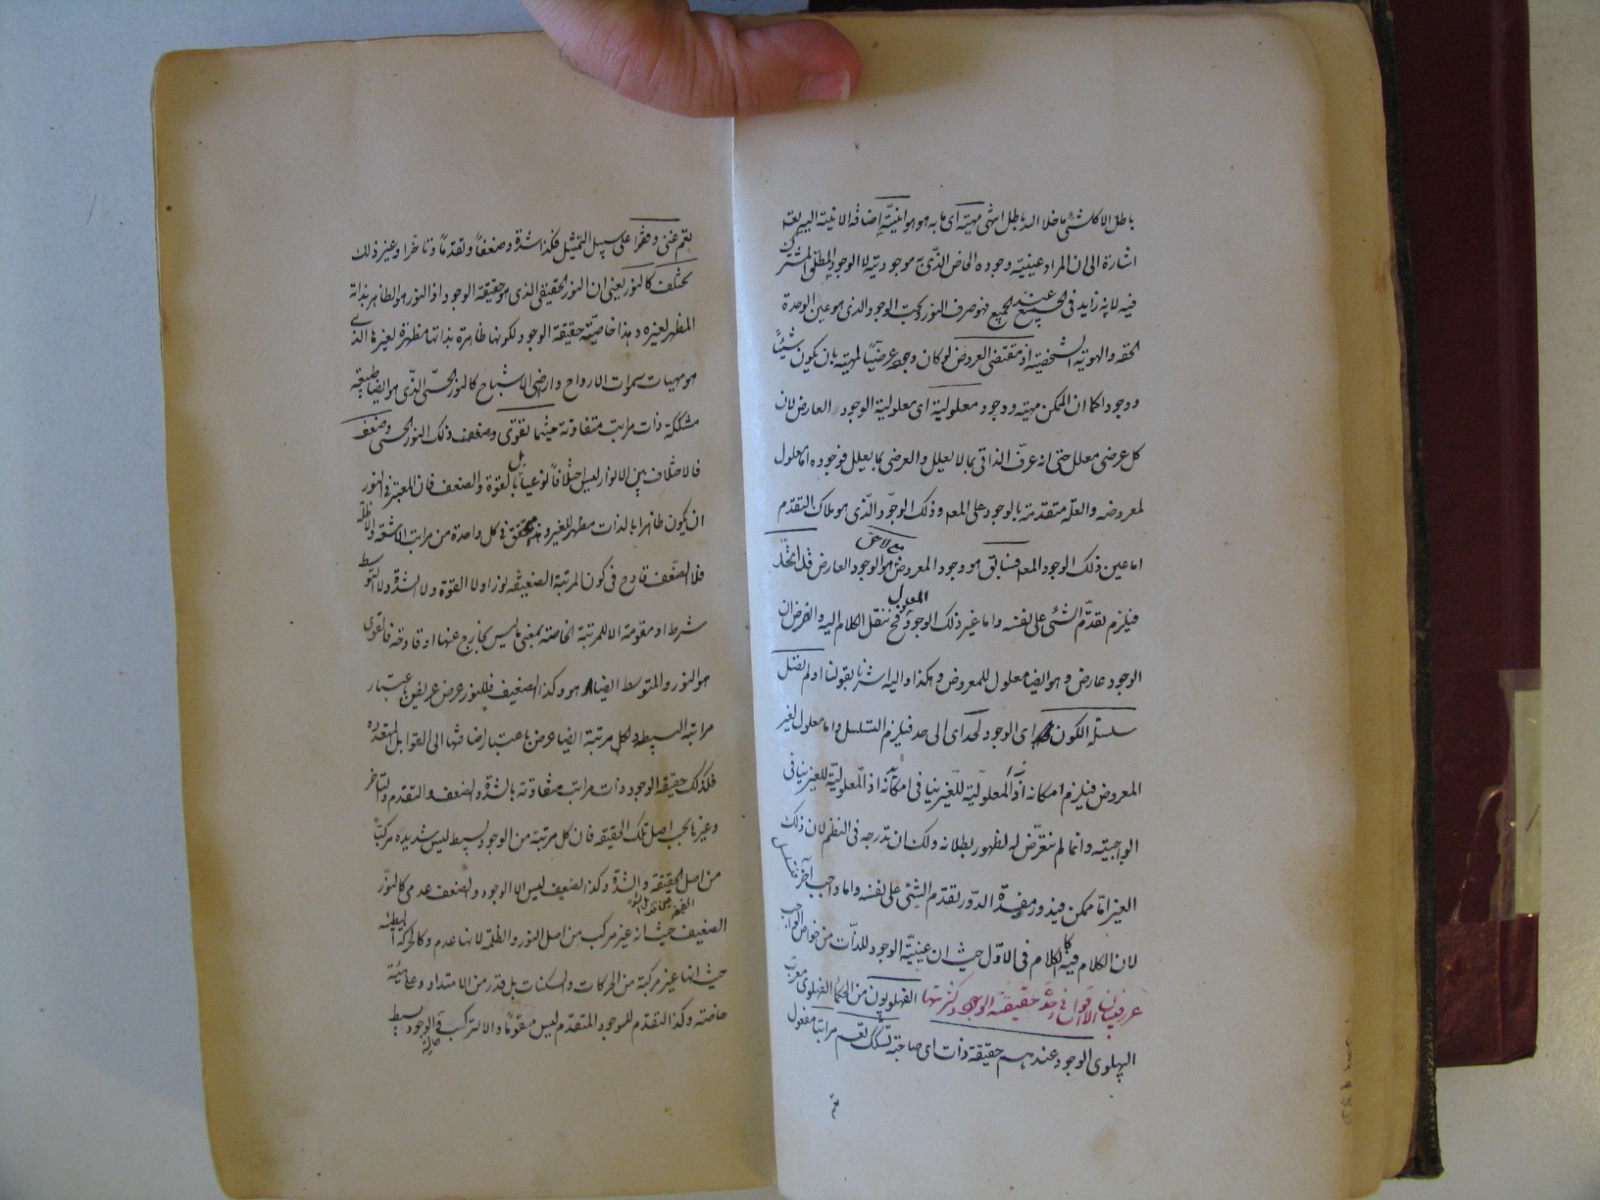 باطل الا كل شئ ما خلا الله باطل اسمى مهيته اى ما به هو هو انيته اضافة الانية اليه تعالى
اشارة الى ان المراد عينية وجوده الخاص الذى به موجوديته لا الوجود المطلق المشترك
فيه لانه زايد فى الجميع عند الجميع فهو صرف النور وبحت الوجود الذى هو عين الوحدة
الحقه والهوية الشخصية اذ مقتضى العروض لو كان وجوده عرضيا لمهيته بان يكون شيئا
ووجودا كما ان الممكن مهية ووجود معلولية اى معلولية الوجود العارض لان
كل عرضى معلل حتى انه عرف الذاتى بما لا يعلل والعرضى بما يعلل فوجوده اما معلول
لمعروضه والعلة متقدمة بالوجود على المعه وذلك الوجود الذى هو ملاك التقدم
اما عين ذلك الوجود المعه فسابق هو وجود المعروض مع لاحق هو الوجود العارض قد اتحد
فيلزم تقدم الشئ على نفسه واما غير ذلك الوجود المعلول فح ننقل الكلام اليه والفرض ان
الوجود عارض وهو ايضا معلول للمعروض وهكذا واليه اشرنا بقولنا او لم يصل
سلسلة الكون اى الوجود لحد اى الى حد فيلزم التسلسل واما معلول لغير
المعروض فيلزم امكانه اذ المعلولية للغير ينافى
الواجبية وانما لم نتعرض له لظهور بطلانه ولك ان تدرجه فى النظم لان ذلك
الغير اما ممكن فيدور مفسدة الدور تقدم الشئ على نفسه واما واجب آخر فتسلسل
لان الكلام فيه كالكلام فى الاول حيث ان عينية الوجود للذات من خواص الواجب
غرر فى بيان الاقوال فى وحدة حقيقة الوجود وكثرتها الفهلويون من الحكما الفهلوى معرب
الپهلوى الوجود عندهم حقيقة ذات اى صاحبة تشكك تعم مراتبا مفعول
تعم غنى وفقرا على سبيل التمثيل فكذا شدة وضعفا وتقدما وتاخرا وغير ذلك
تختلف كالنور يعنى ان النور الحقيقى الذى هو حقيقة الوجود اذ النور هو الظاهر بذاته
المظهر لغيره وهذا خاصية حقيقة الوجود لكونها ظاهرة بذاتها مظهرة لغيرها الذى
هو مهيات سموات الارواح واراضى الاشباح كالنور الحسى الذى هو ايضا طبيعة
مشككة ذات مراتب متفاوتة حيثما تقوى وضعف ذلك النور الحسى وضعف
فالاختلاف بين الانوار ليس اختلافا نوعيا بل بالقوة والضعف فان المعتبر فى النور
ان يكون ظاهرا بالذات مظهرا للغير وهذا متحقق فى كل واحدة من مراتب الاشعة والاظلة
فلا الضعف قادح فى كون المرتبة الضعيفة نورا ولا القوة ولا الشدة ولا التوسط
شرط او مقومة الا للمرتبة الخاصة بمعنى ما ليس بخارج عنها او قادحة فالقوى
هو النور والمتوسط ايضا هو وكذا الضعيف فللنور عرض عريض باعتبار
مراتبه البسيطة ولكل مرتبة ايضا عرض باعتبار اضافتها الى القوابل المتعددة
فكذلك حقيقة الوجود ذات مراتب متفاوتة بالشدة والضعف والتقدم والتاخر
وغيرها بحسب اصل تلك الحقيقة فان كل مرتبة من الوجود بسيط ليس شديده مركبا
من اصل الحقيقة والشدة وكذا الضعيف ليس الا الوجود والضعف عدمى كالنور
الضعيف حيث انه غير مركب من اصل النور والظلمة لانها عدم وكالحركة البطيئة
حيث انها غير مركبة من الحركات والسكنات بل قدر من الامتداد وعلى هيئة
خاصة وكذا التقدم للموجود المتقدم ليس مقوما والا تركب والوجود بسيط